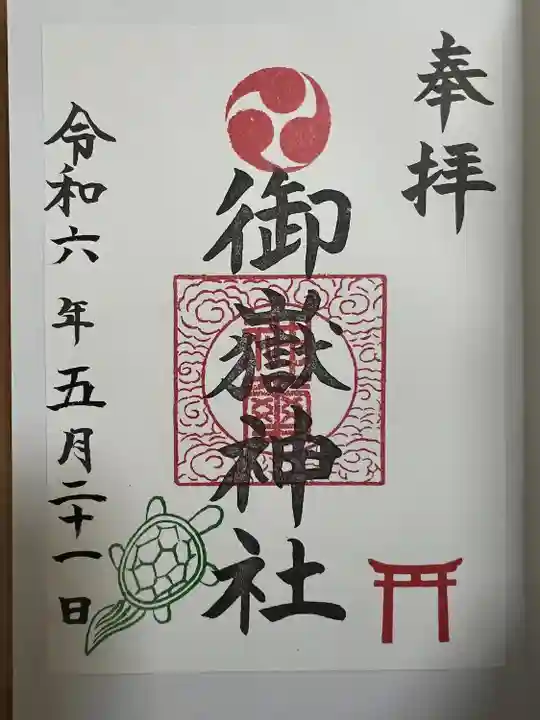 奉拝
御嶽神社
令和六年五月二十一日